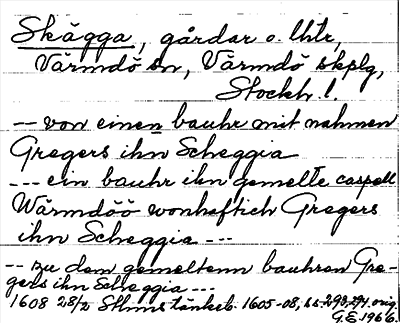 Skägga, gårdar o. lhtr,
Värmdö sn, Värmdö skplg,
Stockh. l.
-- von einen bauhr mit nahmen
Gregers ihn Scheggia
--- ein bauhr ihn gemelte caspell
Wärmdöö wonhaftich Gregers
ihn Scheggia ---
-- zu dem gemeltenn bauhren Gre-
gers ihn Scheggia ---
1608 28/2 Sthlms tänkeb. 1605-08, ss. 293, 294, orig.
G.E. 1966.